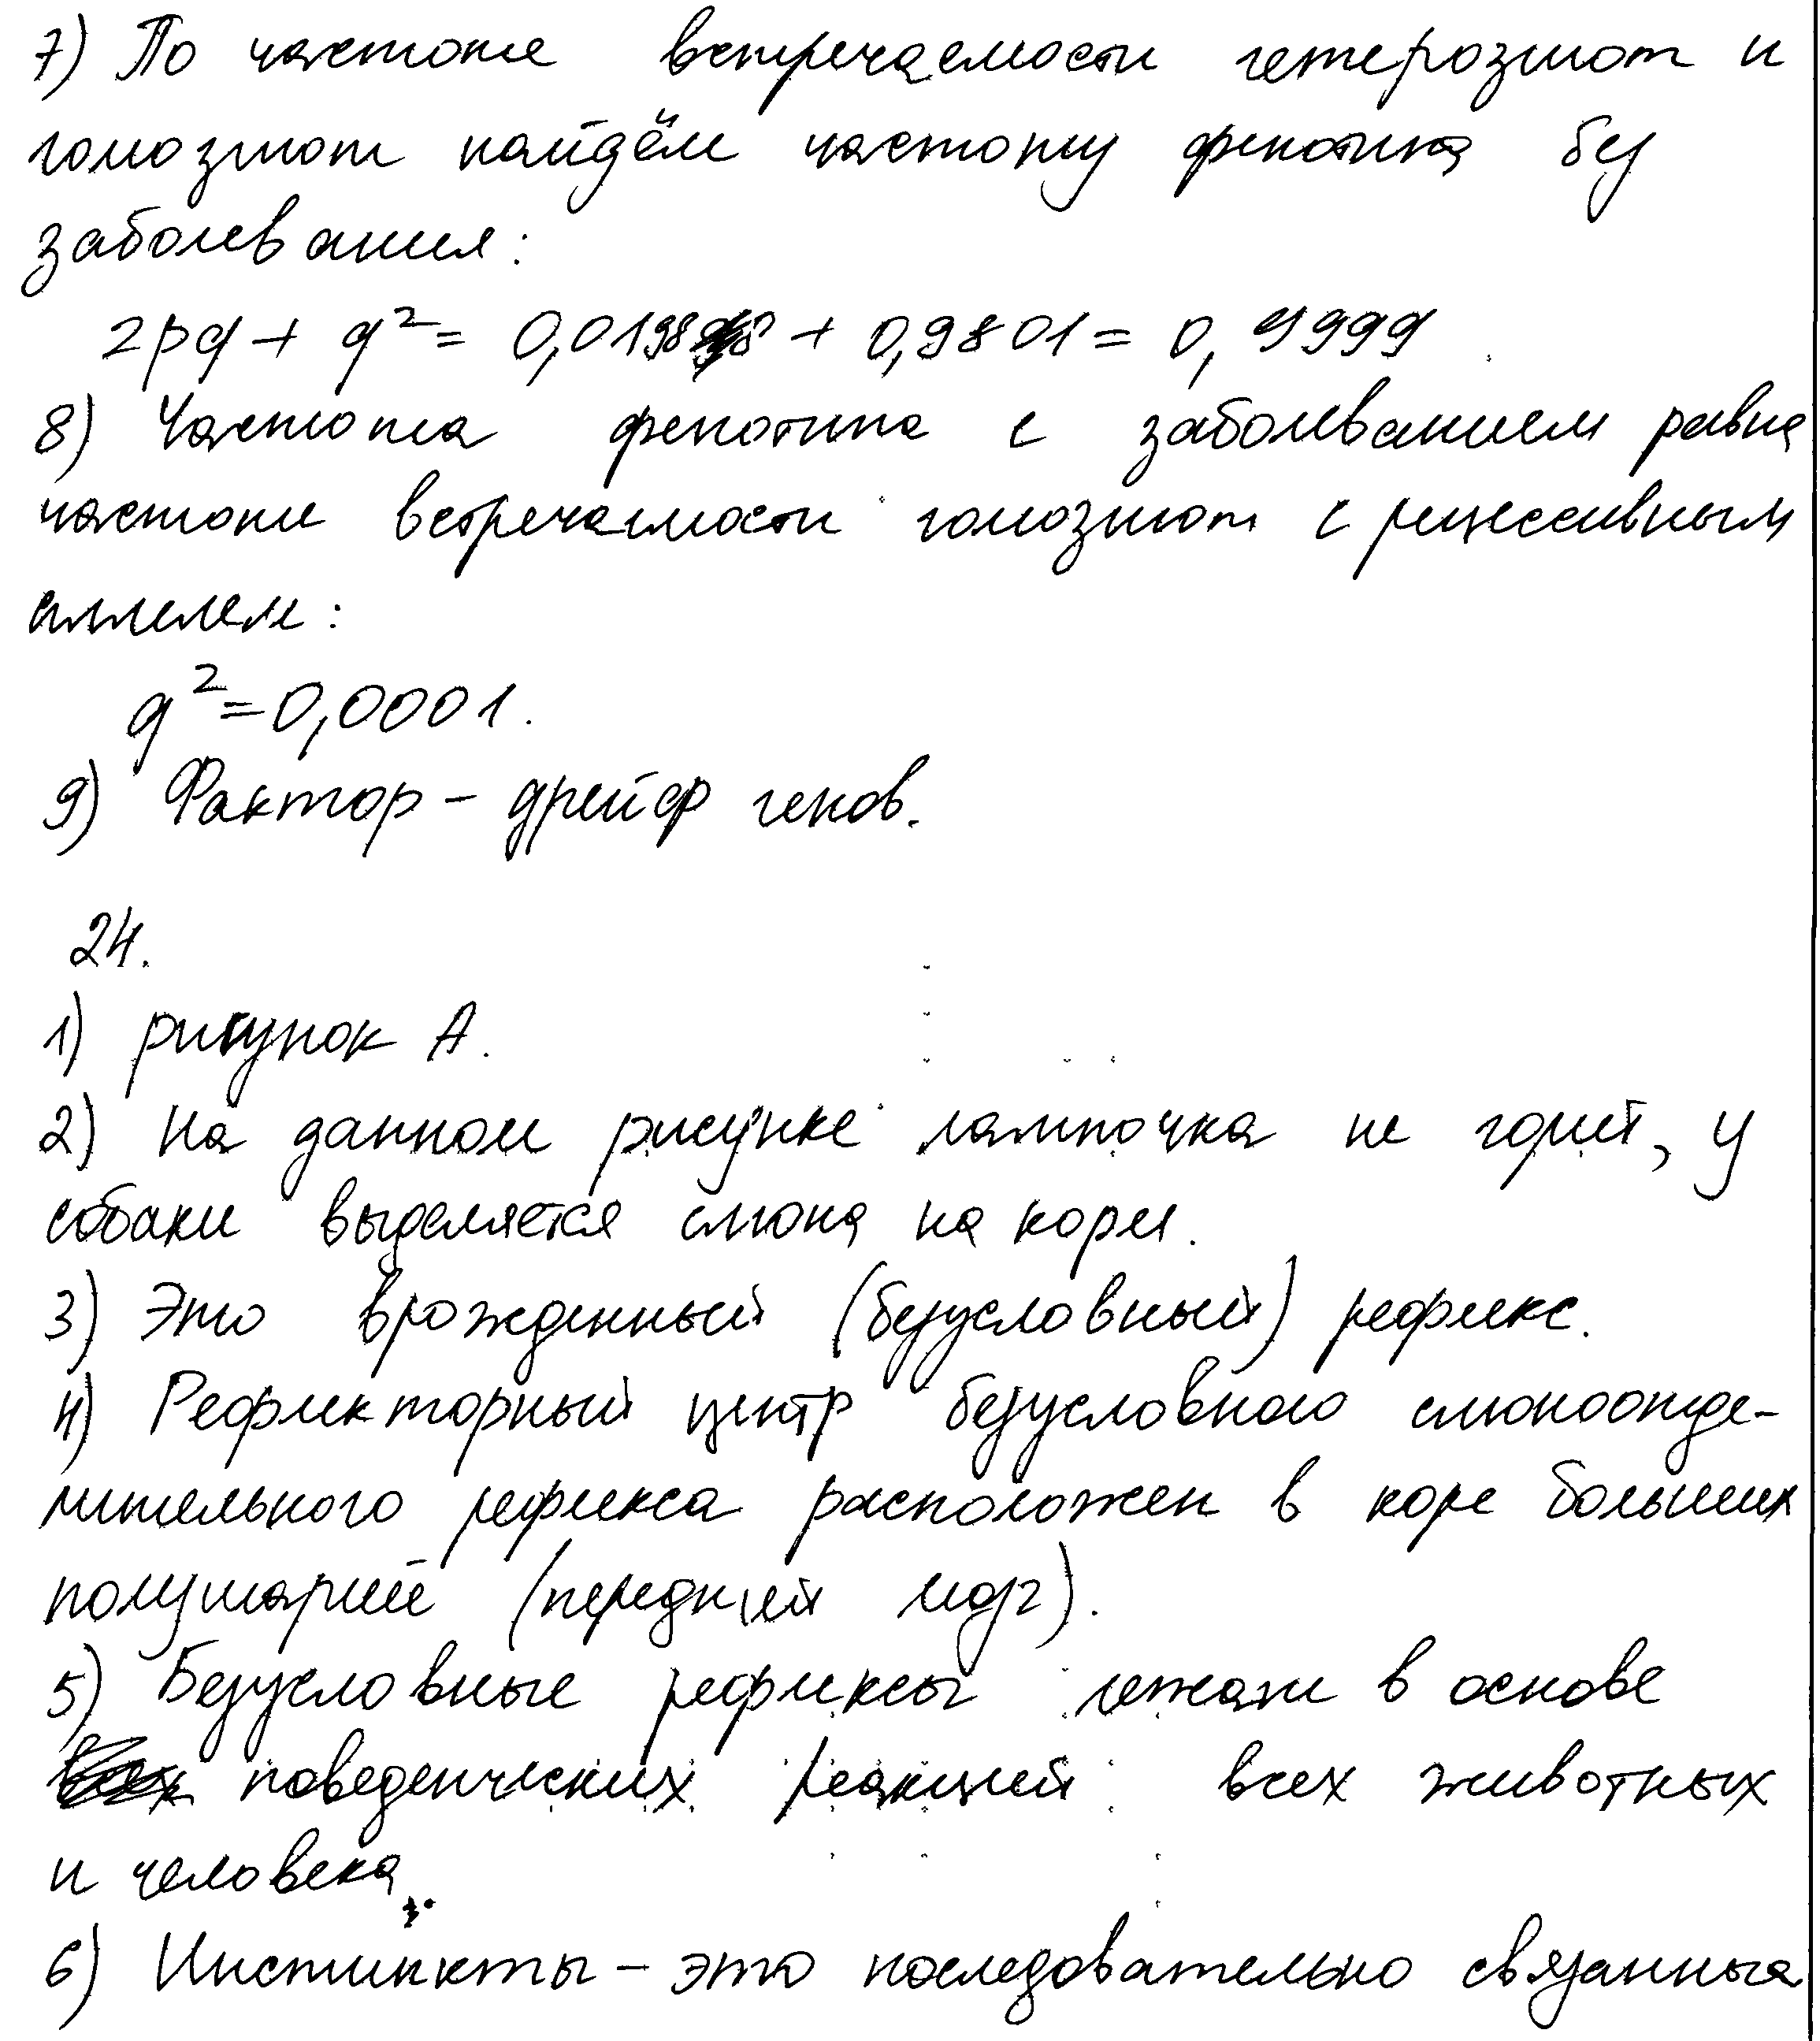 7) По частоте встречаемости гетерозигот и
гомозигот найдём частоту фенотипа без
заболевания:
2pq + q² = 0,0198 + 0,9801 = 0,9999
8) Частота фенотипа с заболеванием равна
частоте встречаемости гомозигот с рецессивным
аллелем:
q² = 0,0001.
9) Фактор – дрейф генов.
24.
1) рисунок А.
2) На данном рисунке лампочка не горит, у
собаки выделяется слюна на корм.
3) Это врожденный (безусловный) рефлекс.
4) Рефлекторный центр безусловного слюноотде-
лительного рефлекса расположен в коре больших
полушарий (передней мозг).
5) Безусловные рефлексы лежат в основе
поведенческих реакций всех животных
и человека.
6) Инстинкты – это последовательно связанные